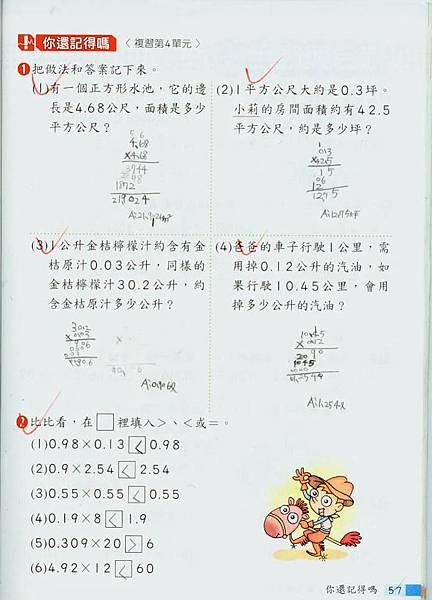 你還記得嗎 〈複習第4單元〉
1 把做法和答案記下來。
(1)有一個正方形水池，它的邊
長是4.68公尺，面積是多少
平方公尺？
4.68
×4.68
3744
2808
1872
219024
(2)1平方公尺大約是0.3坪。
小莉的房間面積約有42.5
平方公尺，約是多少坪？
(3)1公升金桔檸檬汁約含有金
桔原汁0.03公升，同樣的
金桔檸檬汁30.2公升，約
含金桔原汁多少公升？
(4)爸爸的車子行駛1公里，需
用掉0.12公升的汽油，如
果行駛10.45公里，會用
掉多少公升的汽油？
2 比比看，在□裡填入>、<或=。
(1)0.98×0.13 < 0.98
(2)0.9×2.54 < 2.54
(3)0.55×0.55 < 0.55
(4)0.19×8 < 1.9
(5)0.309×20 > 6
(6)4.92×12 < 60
你還記得嗎 57